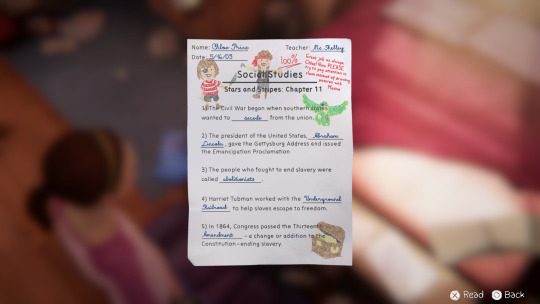 Name: Chloe Price Teacher: Mr. Shelley
Date: 5/16/03
100%
Great job as always,
Chloe! Now PLEASE
try to pay attention in
class instead of drawing
pictures with
Social Studies
Stars and Stripes: Chapter 11
1) The Civil War began when southern states
wanted to secede from the union.
2) The president of the United States, Abraham
Lincoln, gave the Gettysburg Address and issued
the Emancipation Proclamation.
3) The people who fought to end slavery were
called abolitionists.
4) Harriet Tubman worked with the Underground
Railroad to help slaves escape to freedom.
5) In 1864, Congress passed the Thirteenth
Amendment - a change or addition to the
Constitution - ending slavery.
Read Back